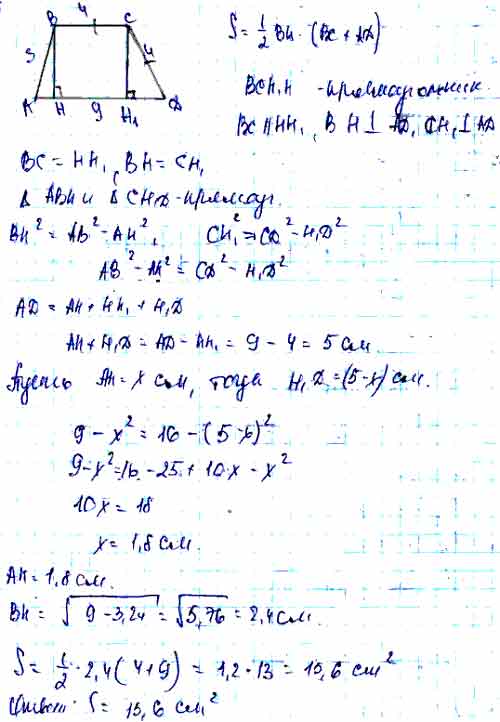 B 4 C
S = 1/2 BH · (BC + AD)
3 4
A H 9 H₁ D
BCH₁H - прямоугольник.
BC ∥ HH₁, BH ⊥ AD, CH₁ ⊥ AD
BC = HH₁, BH = CH₁
Δ ABH и Δ CH₁D - прямоуг.
BH² = AB² - AH², CH₁² = CD² - H₁D²
AB² - AH² = CD² - H₁D²
AD = AH + HH₁ + H₁D
AH + H₁D = AD - HH₁ = 9 - 4 = 5 см.
Пусть AH = x см, тогда H₁D = (5-x) см.
9 - x² = 16 - (5-x)²
9 - x² = 16 - 25 + 10x - x²
10x = 18
x = 1,8 см.
AH = 1,8 см.
BH = √9 - 3,24 = √5,76 = 2,4 см.
S = 1/2 · 2,4 (4+9) = 1,2 · 13 = 15,6 см²
Ответ: S = 15,6 см²